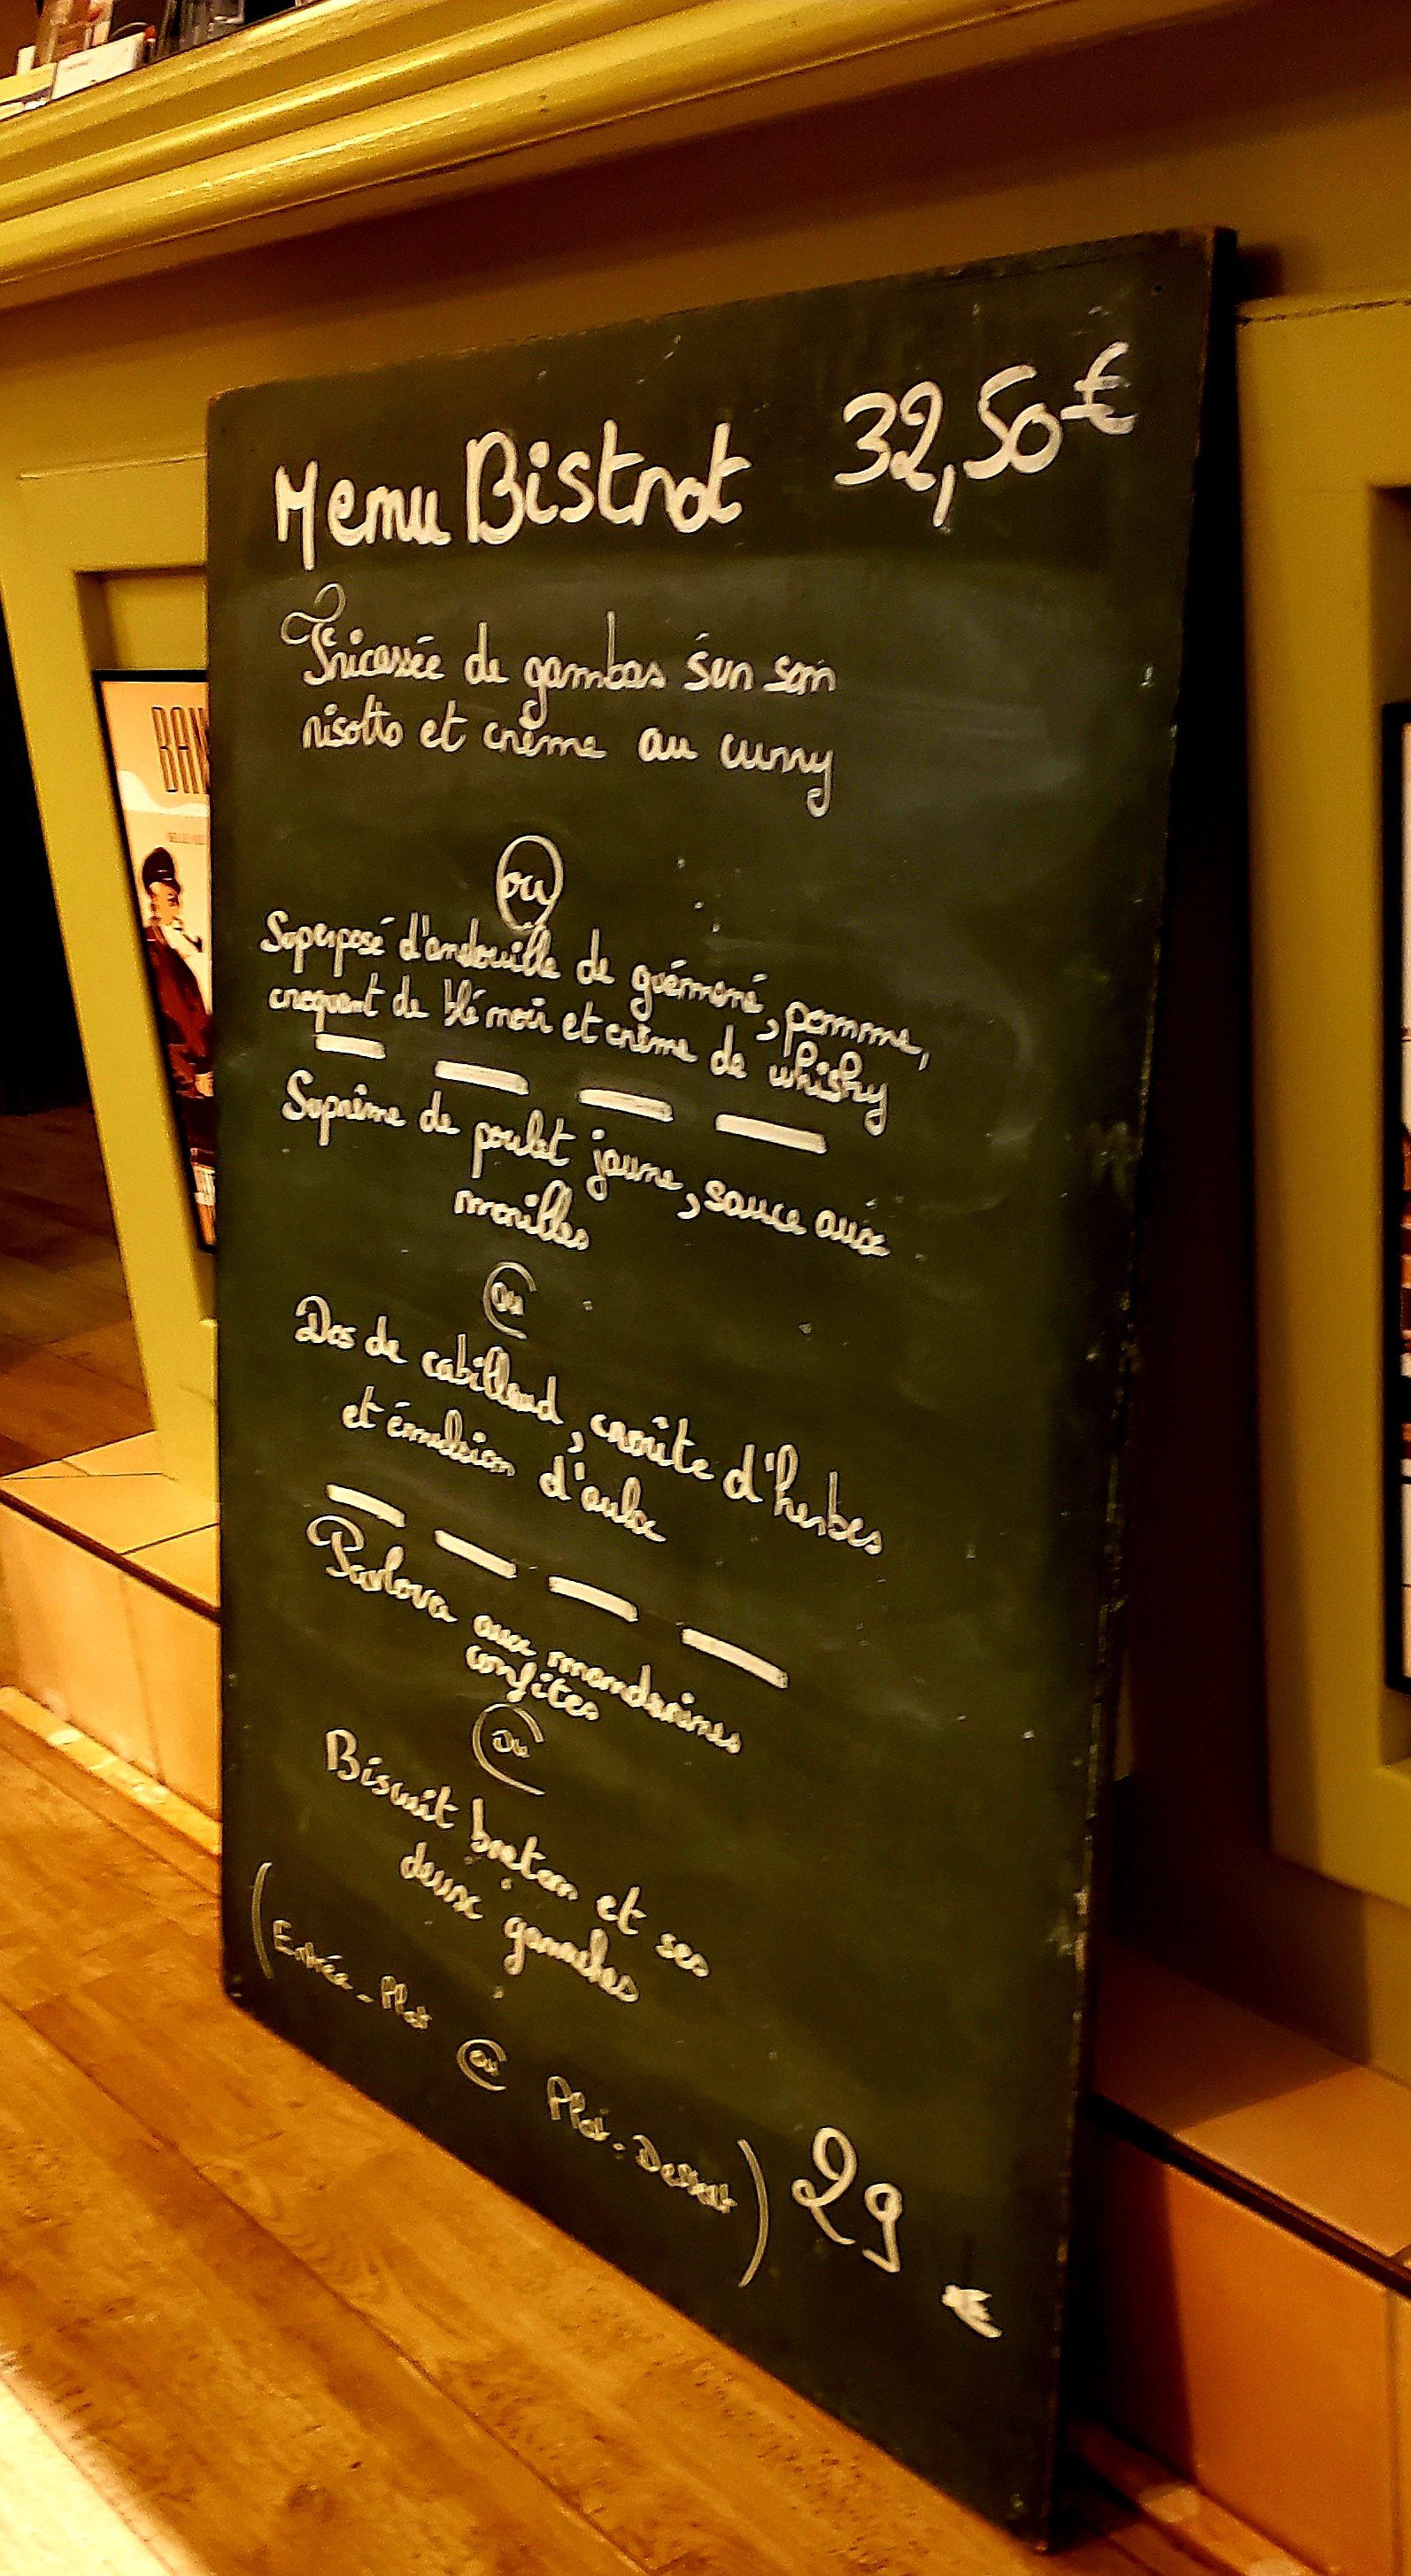 Menu Bistrot 32,50€
Fricassée de gambas sur son
risotto et crème au curry
ou
Superposé d'andouille de guémené, pomme,
croquant de blé noir et crème de whisky
Suprême de poulet jaune, sauce aux
morilles
ou
Dos de cabillaud, croûte d'herbes
et émulsion d'aulx
Pavlova aux mandarines
confites
ou
Biscuit breton et ses
deux ganaches
(Entrée-Plat ou Plat-Dessert) 29 €
BAN